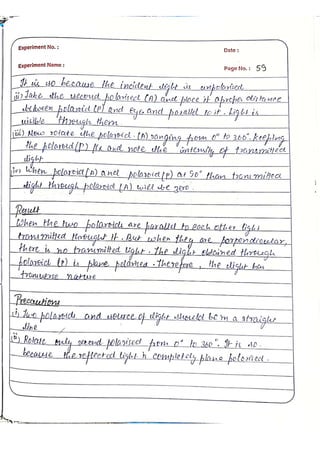 Experiment No. :
Date :
Experiment Name :
Page No. : 59
It is so because the incident light is unpolarised
ii) Take the second polarised (A) and place it a proper distance
between polaroid (P) and eye and parallel to it. Light is
visible through them
iii) Now rotate the polaroid (A) ranging from 0° to 360° keeping
the polaroid (P) fix and note the intensity of transmitted
light
iv) When polaroid (A) and polaroid (P) at 90° than transmitted
light through polaroid (A) will be zero.
Result
When the two polaroids are parallel to each other light
transmitted throught it. But when they are perpendicular,
there is no transmitted light. The light obtained through
polaroid (P) is plane polarised. Therefore, the light has
tranverse nature
Precautions
i) Two polaroids and source of light should be in a straight
line
ii) Rotate only second polarised from 0° to 360°. It is so
because the reflected light is completely plane polarised.